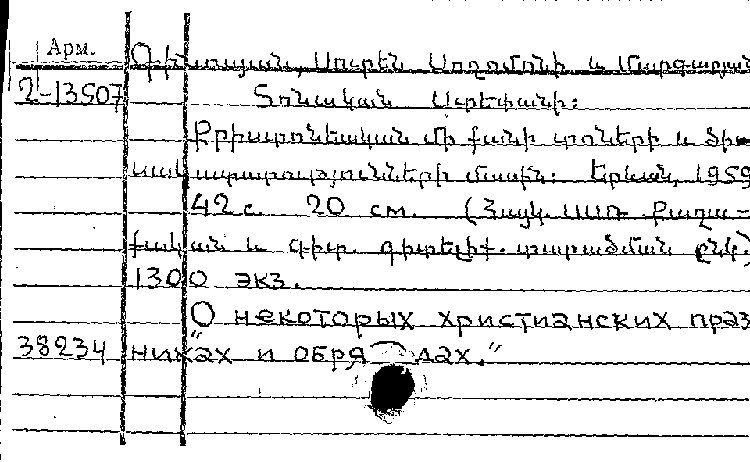 Арм.
Սուրեն Սողոմոնի և Մարգարյան
2-13507 Տոնական Ստեփանի:
Քրիստոնեական մի քանի տոների և ծի-
սակատարությունների մասին: Երևան, 1959
42 с. 20 см. (Հայկ. ՍՍՌ քաղա-
քական և գիտ. գիտելիք. տարածման ընկ.)
1300 экз.
"О некоторых христианских праз
38234 никах и обрядах."